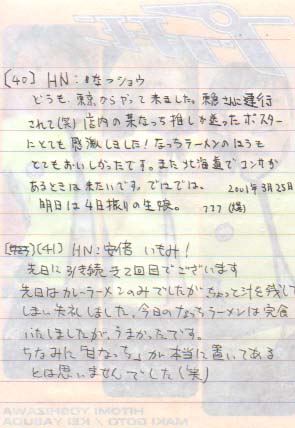 [40] HN:なっショウ
どうも、東京からやって来ました。
されて(笑)店内の某なっち推しか迷ったポスター
にとても感激しました!なっちラーメンのほうも
とてもおいしかったです。また北海道でコンサが
あるときは来たいです。ではでは。 2001年3月25日
明日は4日振りの生娘。 777(爆)
(41) HN:安倍 いもみ!
先日に引き続き2回目でございます
先日はカレーラーメンのみでしたがちょっと汁を残して
しまい失礼しました。今日のなっちラーメンは完食
いたしましたが、うまかったです。
ちなみに「甘なっち」が本当に置いてある
とは思いませんでした(笑)
HITOMI YOSHIZAWA
MAKI GOTO / KEI YASUDA